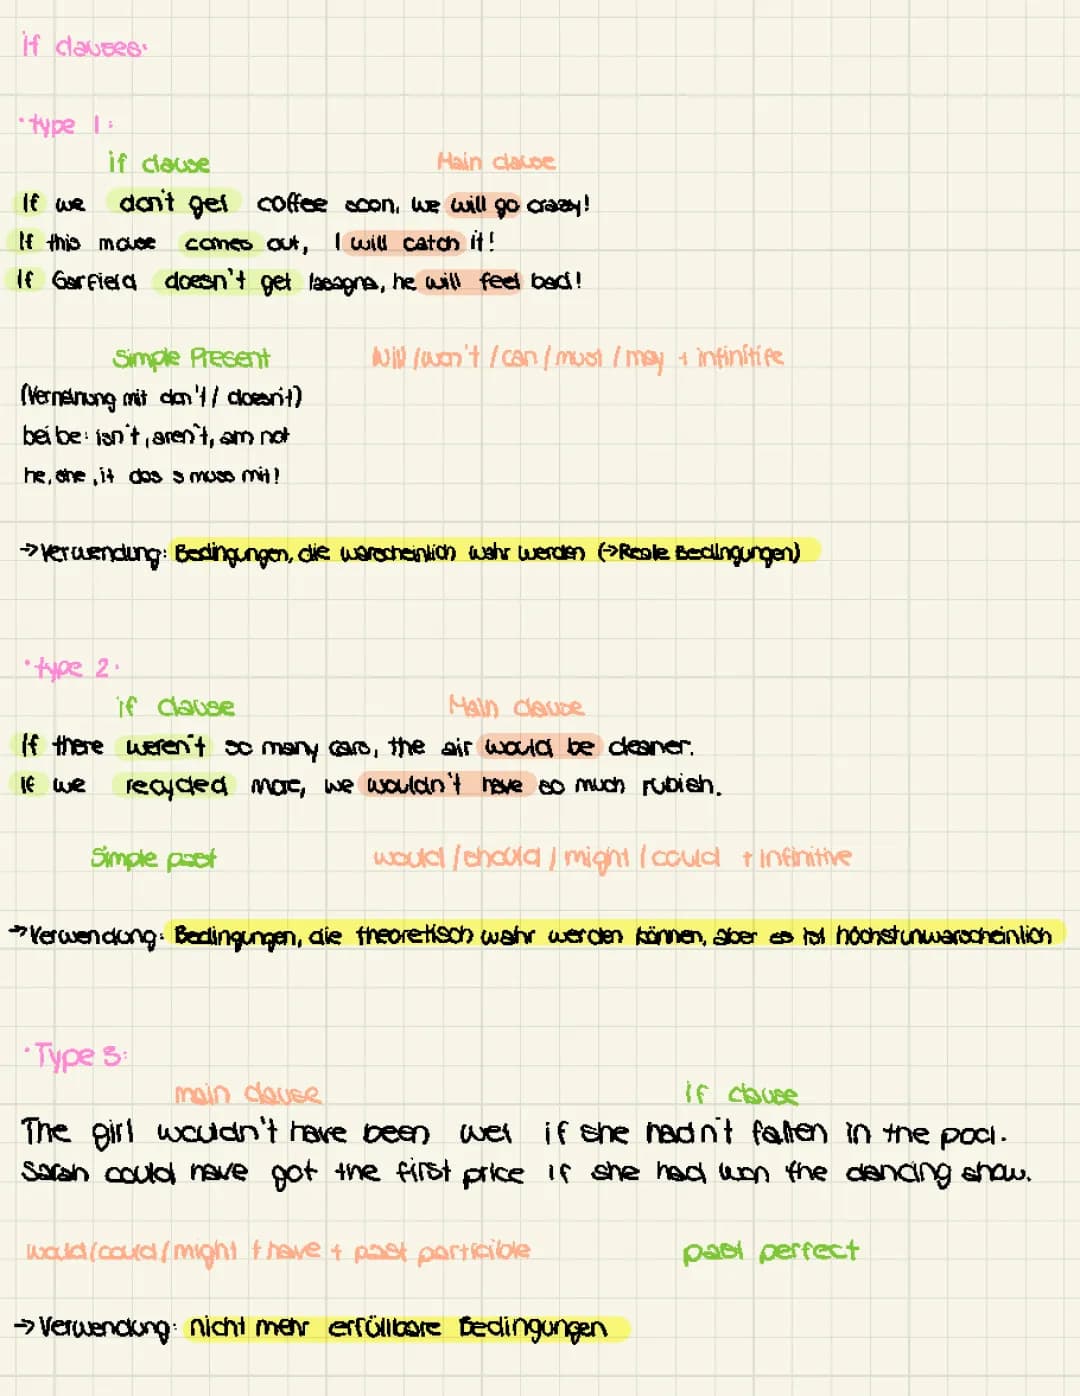 if clauses:
• type 1:
if clause Main clause
If we don't get coffee soon, we will go crazy!
If this mouse comes out, I will catch it!
If Garfield doesn't get lasagna, he will feel bad!
Simple Present Will / won't / can / must / may + infinitife
(Verneinung mit don't / doesn't)
bei be: isn't, aren't, am not
he, she, it das s muss mit!
→ Verwendung: Bedingungen, die warscheinlich wahr werden (→ Reale Bedingungen)
• type 2:
if clause Main clause
If there weren't so many cars, the air would be cleaner.
If we recycled more, we wouldn't have so much rubish.
Simple past would / should / might / could + infinitive
→ Verwendung: Bedingungen, die theoretisch wahr werden können, aber es ist höchstunwarscheinlich
• Type 3:
main clause if clause
The girl wouldn't have been wet if she hadn't fallen in the pool.
Sarah could have got the first price if she had won the dancing show.
would / could / might + have + past particible past perfect
→ Verwendung: nicht mehr erfüllbare Bedingungen